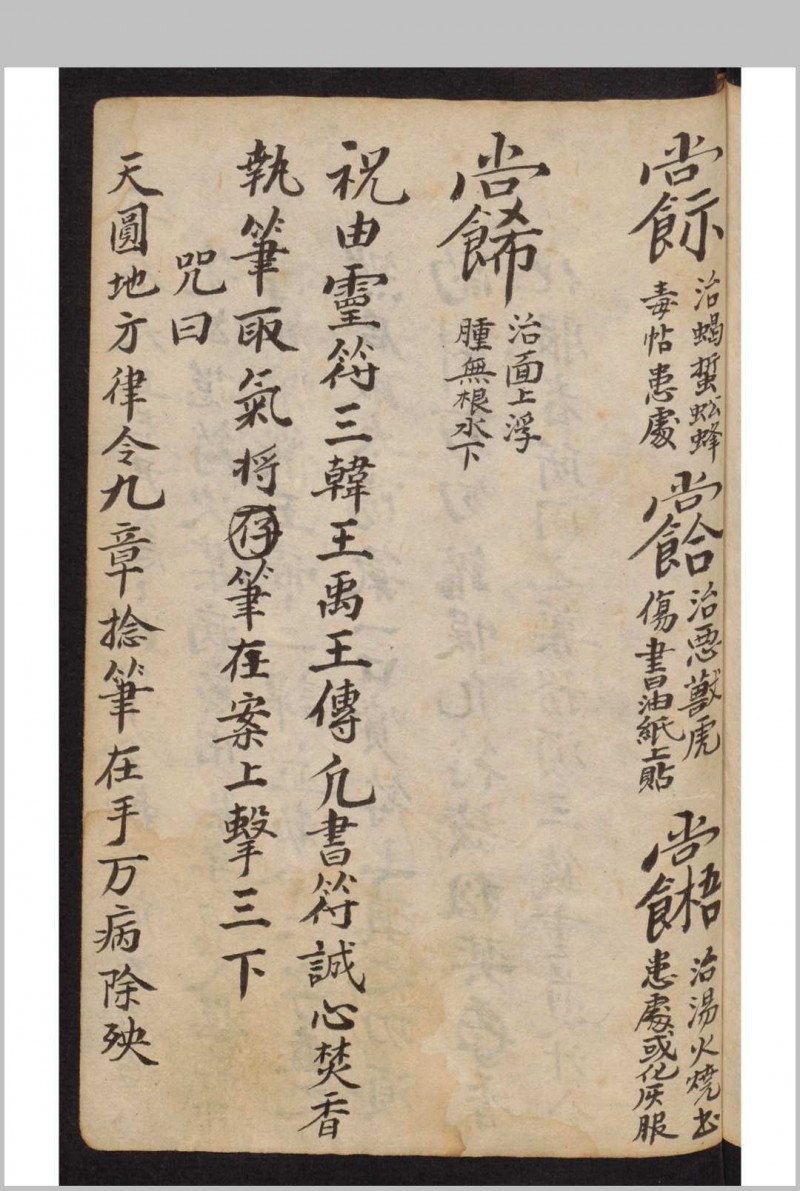 治蝎蜇蚣蜂
毒帖患處
治悪獸虎
傷書油紙上貼
治湯火燒书
患處或化灰服
治面上浮
腫無根水下
祝由靈符三韓王禹王傳凢書符誠心焚香
執筆取氣將存筆在案上擊三下
咒曰
天圓地方律令九章捻筆在手万病除殃